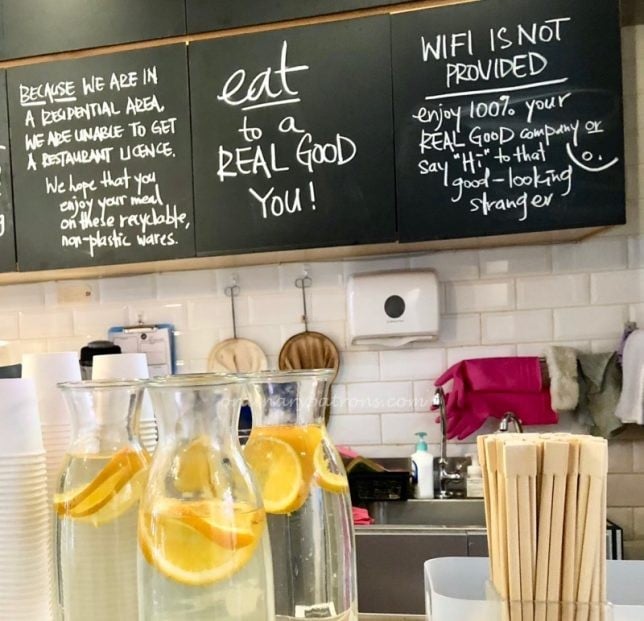 BECAUSE WE ARE IN
A RESIDENTIAL AREA,
WE ARE UNABLE TO GET
A RESTAURANT LICENCE.
We hope that you
enjoy your meal
on these recyclable,
non-plastic wares.
eat
to a
REAL GOOD
YOU!
WIFI IS NOT
PROVIDED
enjoy 100% your
REAL GOOD company or
say "Hi" to that
good-looking
stranger
ordinarypatrons.com